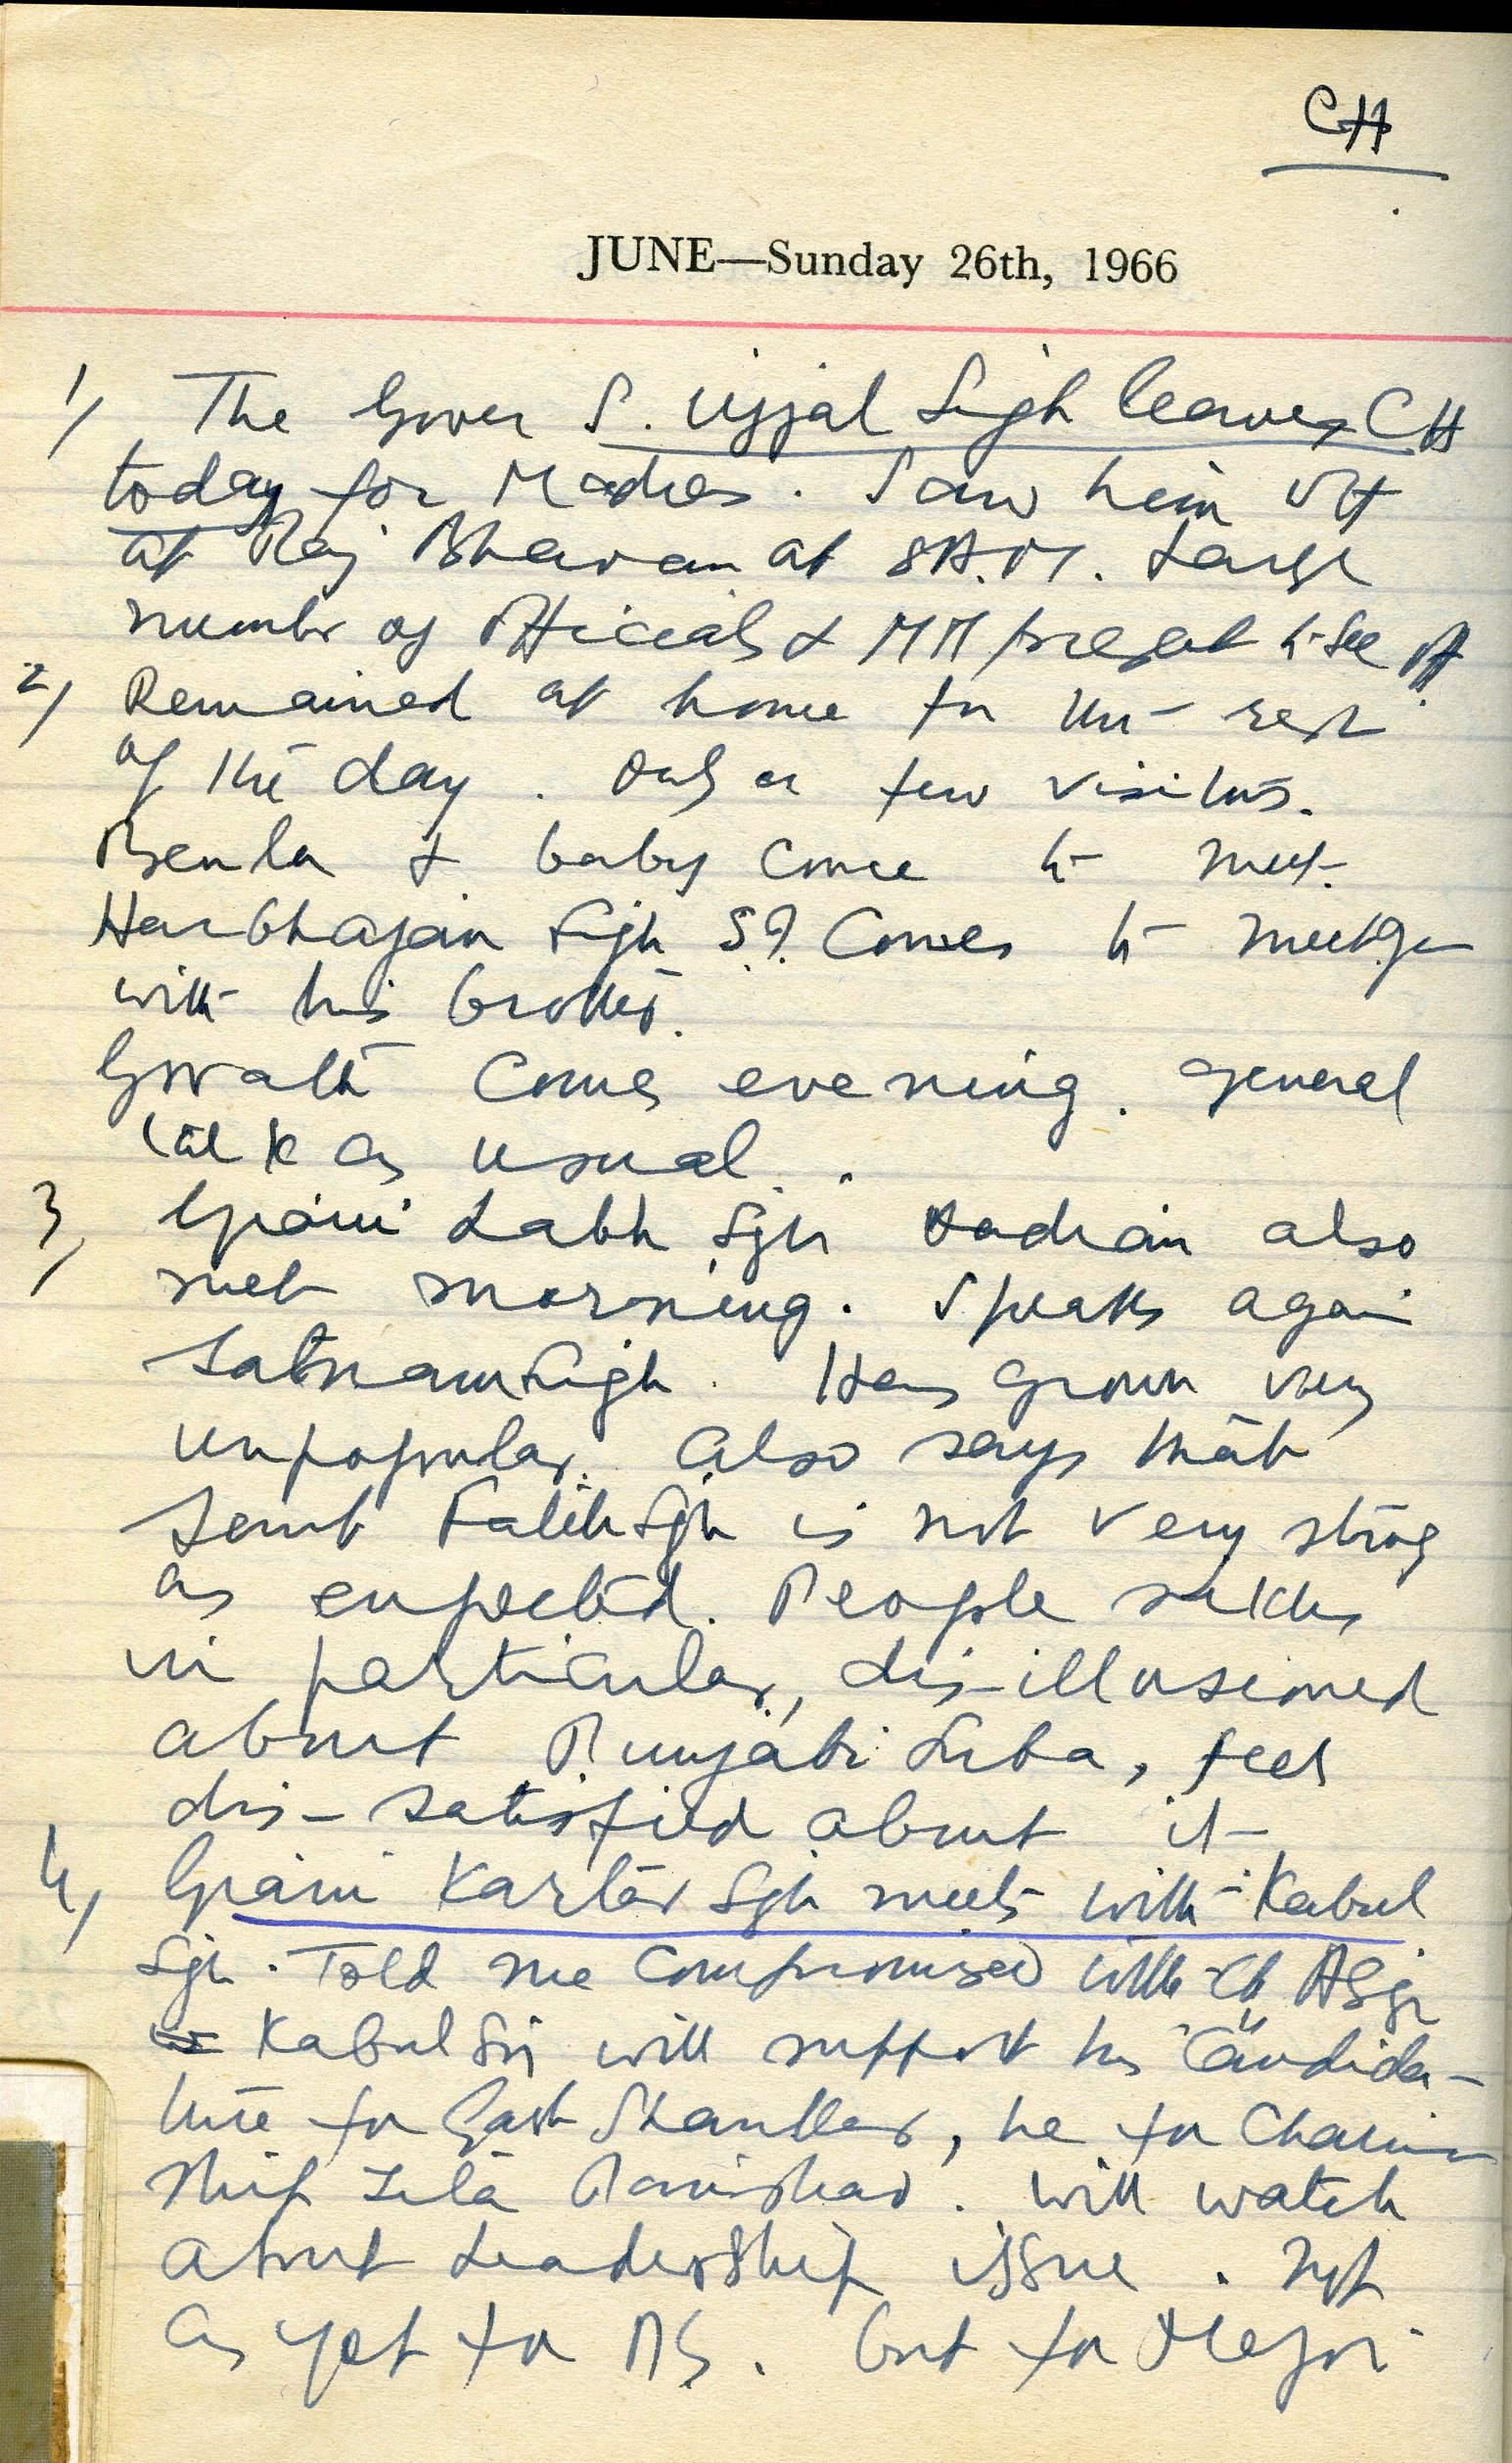 CH
JUNE—Sunday 26th, 1966
1) The Gover S. Ujjal Singh leaves CH
today for Madras. Saw him off
at Raj Bhavan at 8 A.M. Large
number of officials & MM present to see off
2) Remained at home for the rest
of the day. Only a few visitors.
& baby come to meet.
Harbhajan Singh S.P. Comes to meet
with his brother.
Comes evening. general
talk as usual.
3) Giani Labh Sgh also
met morning. Speaks again
Satnam Singh. Has grown very
unpopular. Also says that
Sant Fateh Sgh is not very strong
as expected. People sikhs
in particular, dis-illusioned
about Punjabi Suba, feel
dis-satisfied about it
4) Giani Kartar Sgh meets with Kabul
Sgh. Told me compromised with
Kabul Sgh will support his Candida-
ture for , he for Chairman
ship Zila Parishad. Will watch
about Leadership issue. Not
as yet for . but for Major